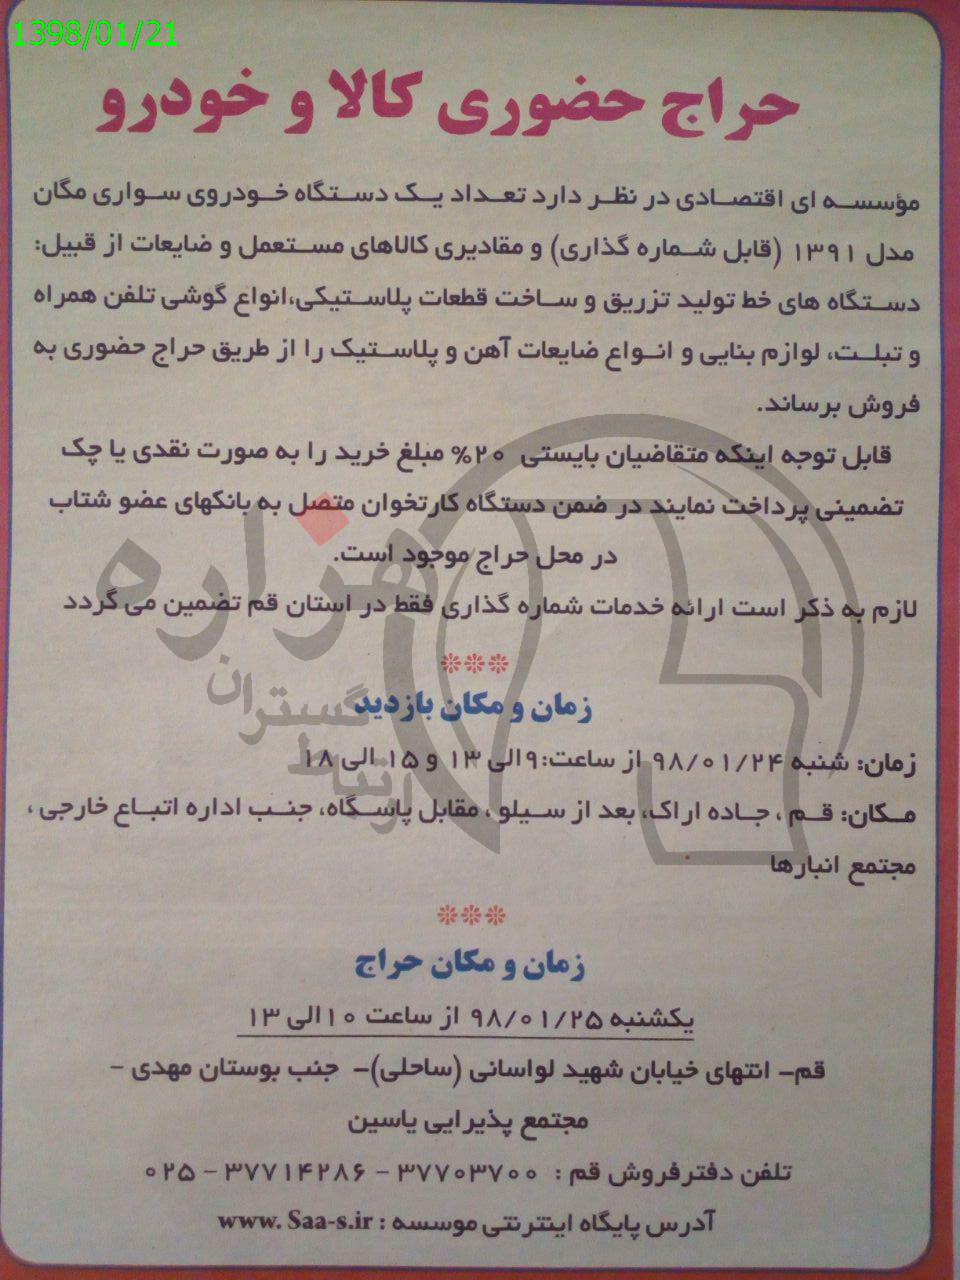 1398/01/21
حراج حضوری کالا و خودرو
مؤسسه ای اقتصادی در نظر دارد تعداد یک دستگاه خودروی سواری مگان
مدل ۱۳۹۱ (قابل شماره گذاری) و مقادیری کالاهای مستعمل و ضایعات از قبیل:
دستگاه های خط تولید تزریق و ساخت قطعات پلاستیکی،انواع گوشی تلفن همراه
و تبلت، لوازم بنایی و انواع ضایعات آهن و پلاستیک را از طریق حراج حضوری به
فروش برساند.
قابل توجه اینکه متقاضیان بایستی ۲۰% مبلغ خرید را به صورت نقدی یا چک
تضمینی پرداخت نمایند در ضمن دستگاه کارتخوان متصل به بانکهای عضو شتاب
در محل حراج موجود است.
هزاره
لازم به ذکر است ارائه خدمات شماره گذاری فقط در استان قم تضمین می گردد
***
گستران
زمان و مکان بازدید
ارتباط
زمان: شنبه ۹۸/۰۱/۲۴ از ساعت:۹الی ۱۳ و ۱۵ الی ۱۸
مکان: قم ، جاده اراک، بعد از سیلو ، مقابل پاسگاه، جنب اداره اتباع خارجی ،
مجتمع انبارها
***
زمان و مکان حراج
یکشنبه ۹۸/۰۱/۲۵ از ساعت ۱۰الی ۱۳
قم– انتهای خیابان شهید لواسانی (ساحلی)– جنب بوستان مهدی –
مجتمع پذیرایی یاسین
تلفن دفترفروش قم : ۳۷۷۰۳۷۰۰ – ۳۷۷۱۴۲۸۶ – ۰۲۵
آدرس پایگاه اینترنتی موسسه : www. Saa-s.ir